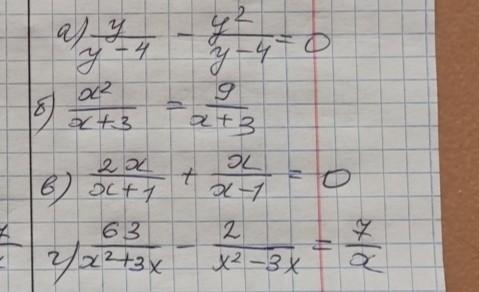 а) y/(y-4) - y²/(y-4) = 0
б) x²/(x+3) = 9/(x+3)
в) 2x/(x+1) + x/(x-1) = 0
г) 63/(x²+3x) - 2/(x²-3x) = 7/x